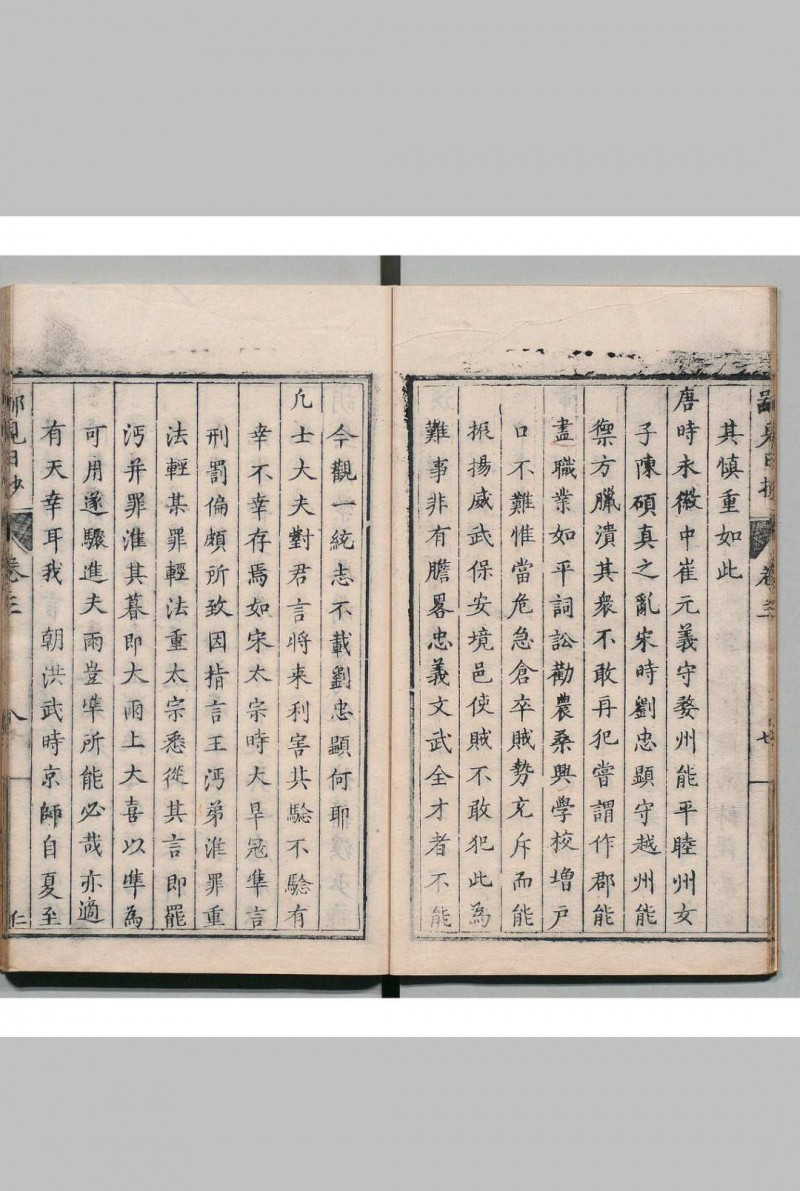 其慎重如此
唐時永徽中崔元義守婺州能平睦州女
子陳碩真之亂宋時劉忠顯守越州能
禦方臘潰其衆不敢再犯嘗謂作郡能
盡職業如平詞訟勸農桑興學校増戶
口不難惟當危急倉卒賊勢充斥而能
振揚威武保安境邑使賊不敢犯此為
難事非有膽畧忠義文武全才者不能
今觀一統志不載劉忠顯何耶
凢士大夫對君言將来利害其驗不驗有
幸不幸存焉如宋太宗時大旱冦凖言
刑罰偏頗所致因指言王沔弟淮罪重
法輕某罪輕法重太宗悉從其言即罷
沔并罪淮其暮即大雨上大喜以凖為
可用遂驟進夫雨豈凖所能必哉亦適
有天幸耳我 朝洪武時京師自夏至
鄙見日抄 卷三 八 仁